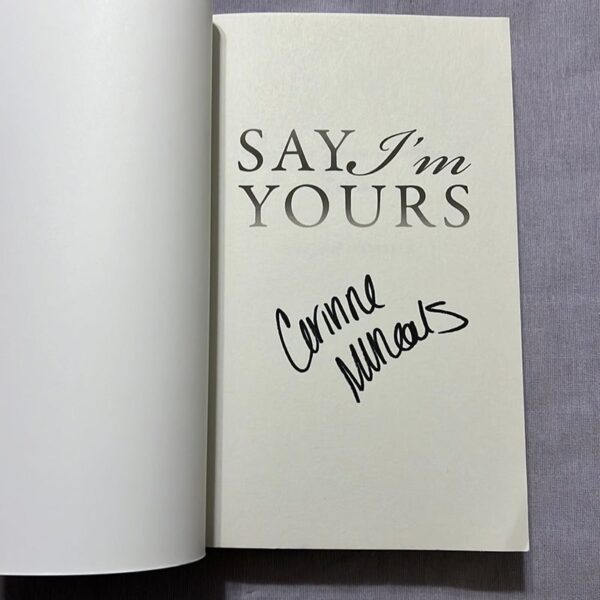 SAY I'm
YOURS
Corinne
Michaels